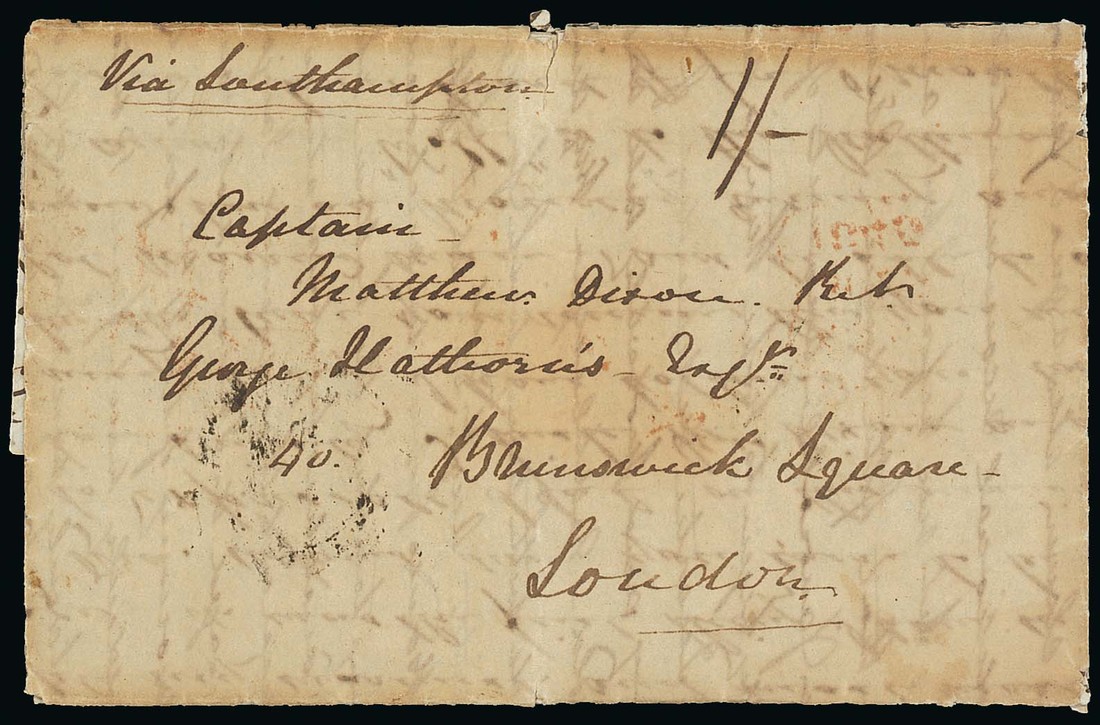 Via Southampton
1/-
Captain
Matthew Dixon
George Hathorn's Esqr.
40. Brunswick Square
London